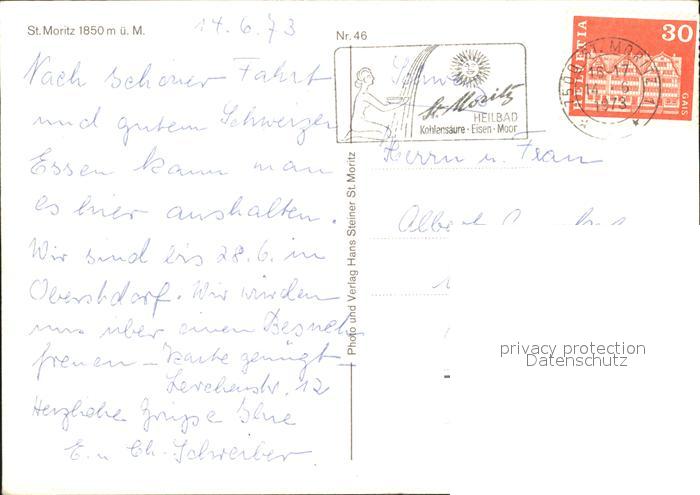 St. Moritz 1850 m ü. M.
14.6.73
Nach schöner Fahrt
und gutem Schweizer
Essen kann man
es hier aushalten.
Wir sind bis 28.6. in
Oberstdorf. Wir würden
uns über einen Besuch
freuen – Karte genügt –
Lerchenstr. 12
Herzliche Grüsse Ihre
E. u. Ch. Schreiber
Nr. 46
Photo und Verlag Hans Steiner St. Moritz
St. Moritz
HEILBAD
Kohlensäure · Eisen · Moor
7500 ST. MORITZ 1
16-17
14. 6.
1973
HELVETIA
30
GAIS
Herrn u. Frau
privacy protection
Datenschutz